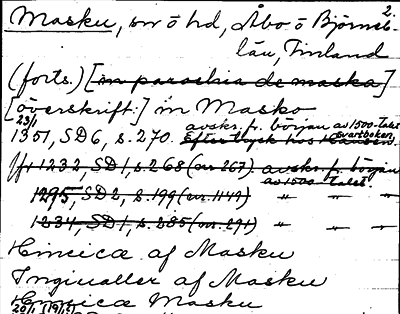 2.
Masku, sn o hd, Åbo o Björneb.
län, Finland
(forts.) [in parochia de maska]
[överskrift:] in Masko
23/1
1351, SD6, s. 270. avskr. fr. början av 1500-talet
Svartboken.
Efter tryck hos Hausen.
1232, SD1, s. 268 (nr 267) avskr. fr. början
av 1500-talet.
1295, SD2, s. 199 (nr 1149) " " "
1234, SD1, s. 285 (nr 291) " " "
Hincicæ af Masku
Ingiualler af Masku
Hincicæ Masku
20/1